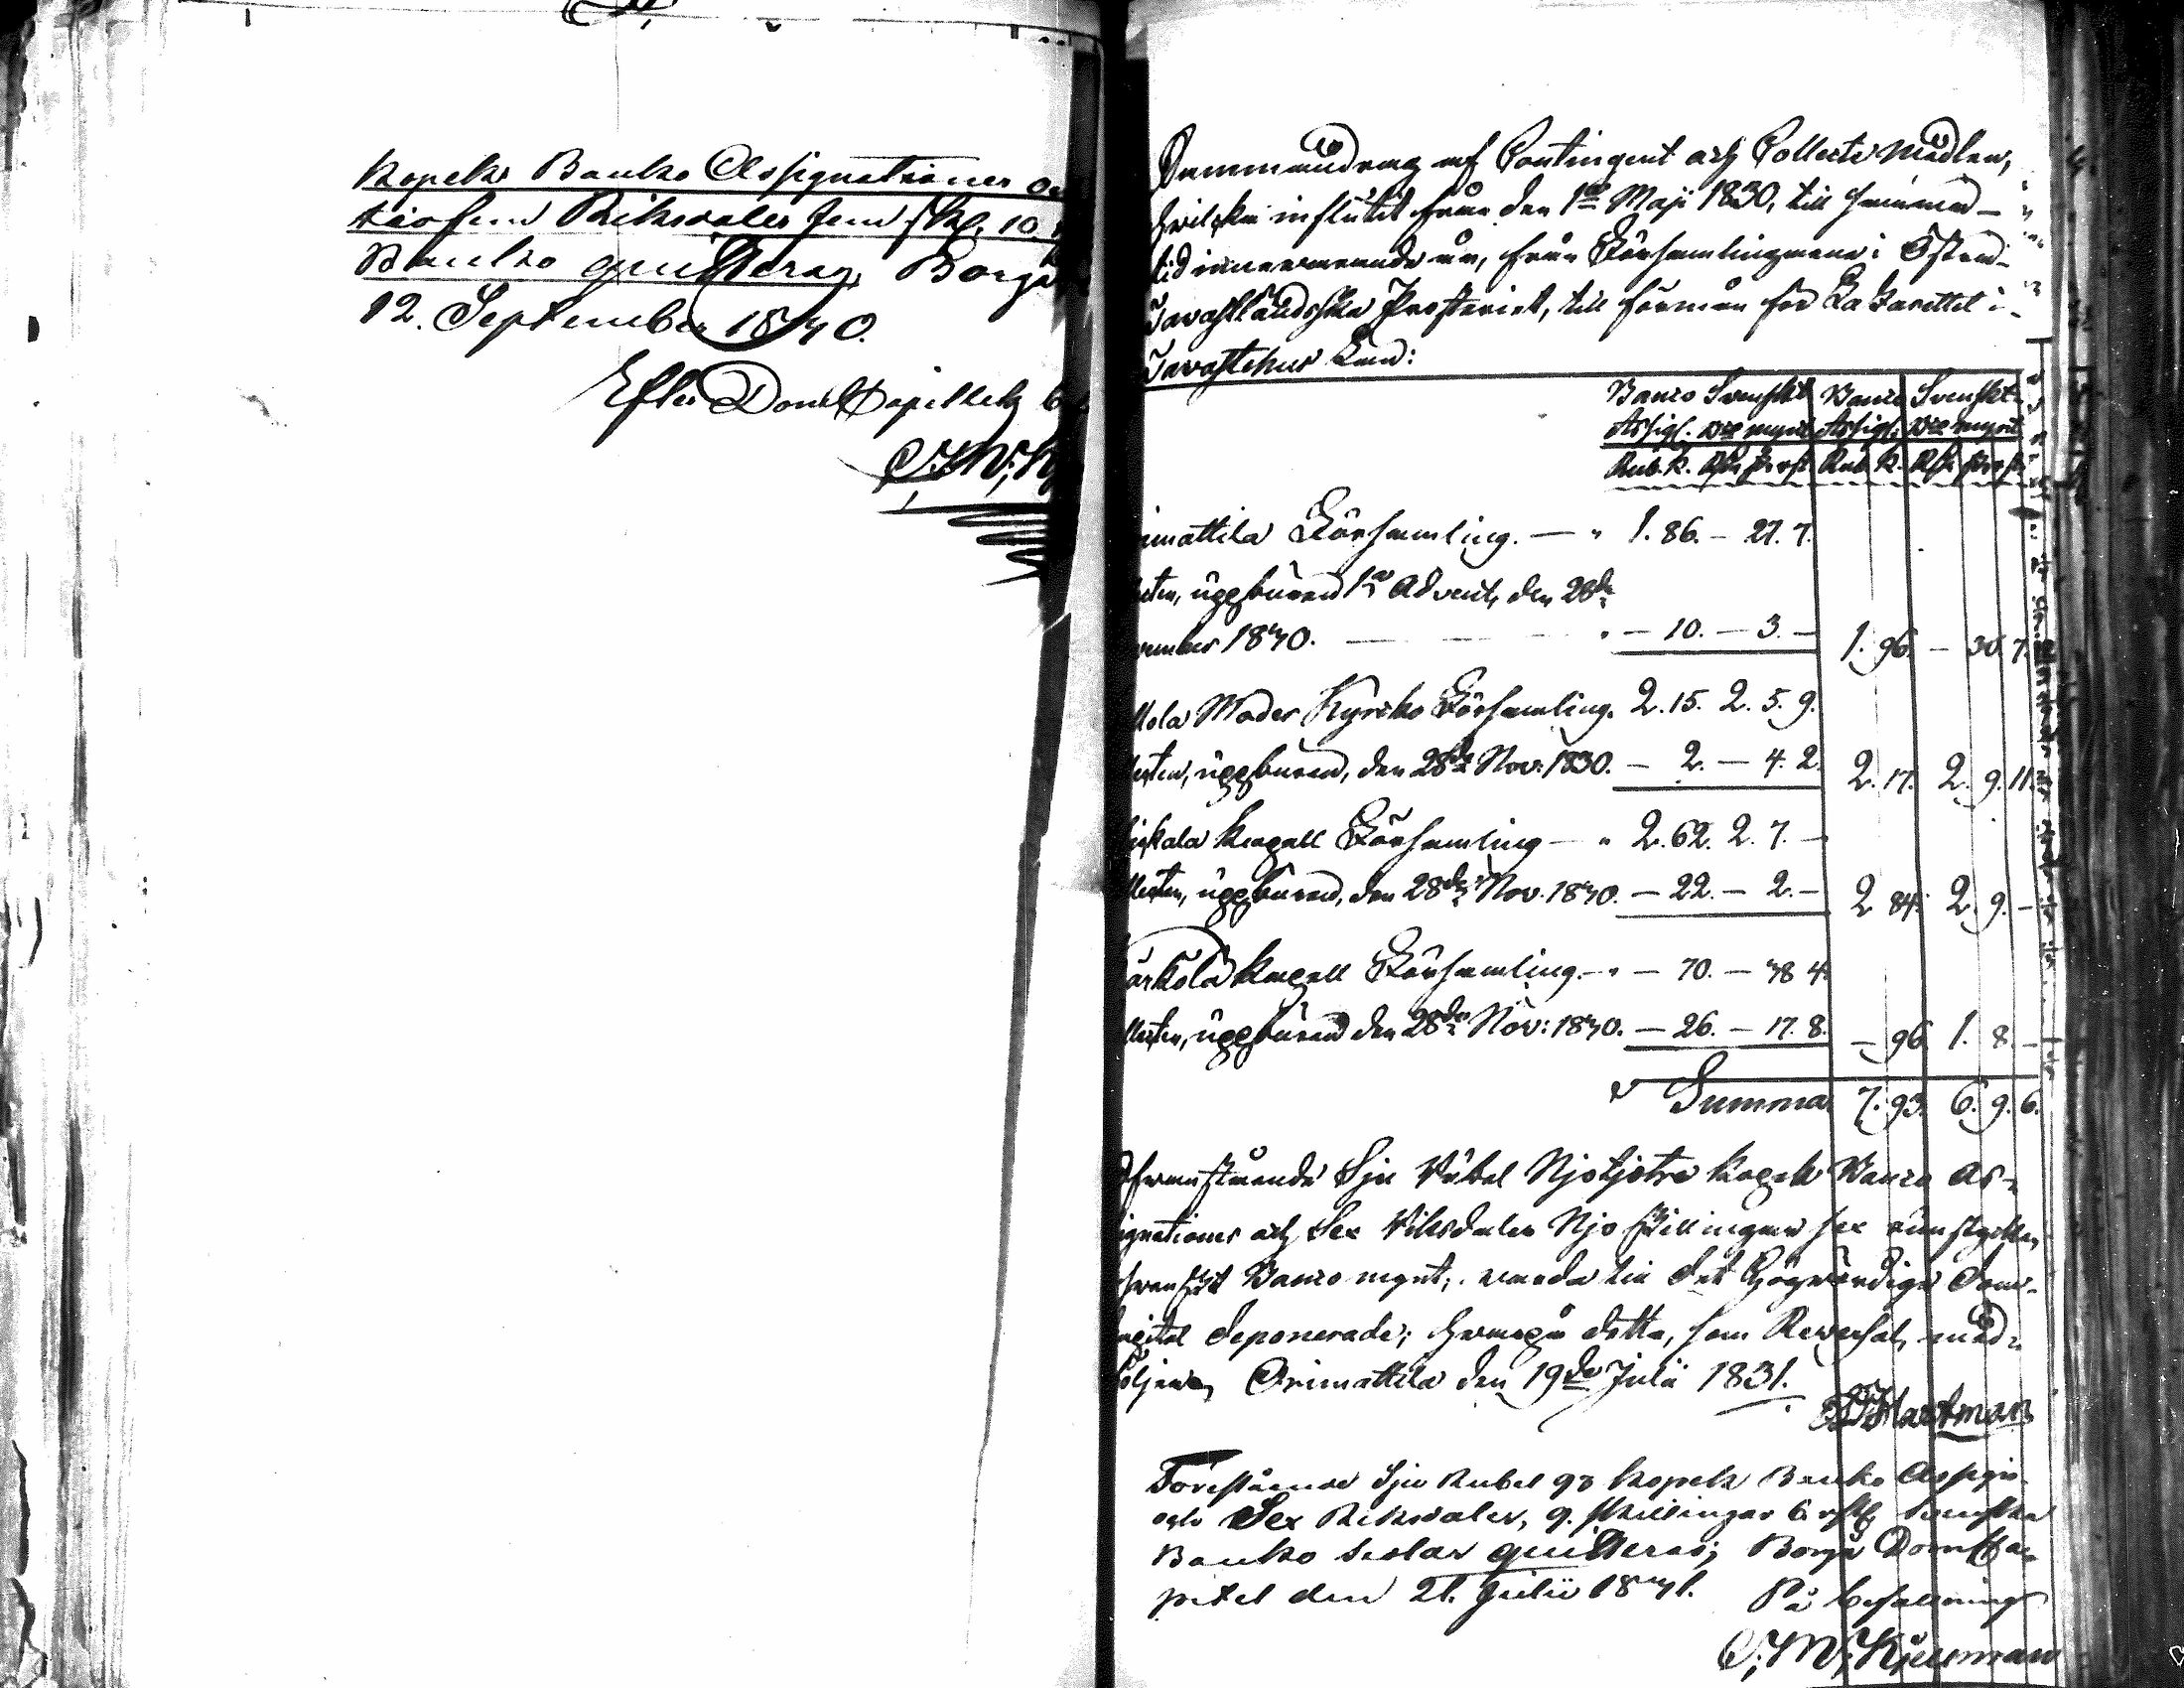 Kopek Banko Assignationer oc
tiofem Riksdaler fem sk. 10.
Banko quitteras, Borgå
12. September 1830.
Efter DomCapitlets b
Sammandrag af Contingent och Collecte Medlen,
hvilka influtit från den 1sta Maji 1830, till samma
tid innevarande år, från Församlingarne i Östra
Tavastländska Prosteriet, till förmån för Lazarettet i
Tavastehus Län:
Banco Svenskt Banco Svenskt
Assig. Bco mynt Assig. Bco mynt
Rub. K. Rd sk rst Rub. K. Rd sk rst
imattila Församling. — " 1. 86. — 27. 7.
ten, uppburen 1sta Advent, den 28de
vember 1830. — " — 10. — 3. — 1. 96. — 30. 7.
llola Moder Kyrko Församling. 2. 15. 2. 5. 9.
lecten, uppburen, den 28de Nov: 1830. — 2. — 4. 2. 2. 17. 2. 9. 11.
kala Kapell Församling — " 2. 62. 2. 7. —
llecten, uppburen, den 28de Nov. 1830. — 22. — 2. — 2. 84. 2. 9. —
ärkölä Kapell Församling. — " — 70. — 38. 4.
llecten, uppburen den 28de Nov: 1830. — 26. — 17. 8. — 96. 1. 8. —
Summa 7. 93. 6. 9. 6.
Ofvanstående Sju Rubel Njotjotre Kopek Banco As-
ignationer och Sex Riksdaler Njo skillingar sex runstycken
svenskt Banco mynt, varda till det Högvördiga Dom-
apitel deponerade; hvarpå detta, som Reversal, med-
öljer, Orimattila den 19de Julii 1831.
Hartman
Förestående Sju Rubel 93 Kopek Banko Assign.
och Sex Riksdaler, 9. skillingar 6 rst Svenska
Banko sedlar quitteras; Borgå DomCa-
pitel den 21. Julii 1831. På befallning